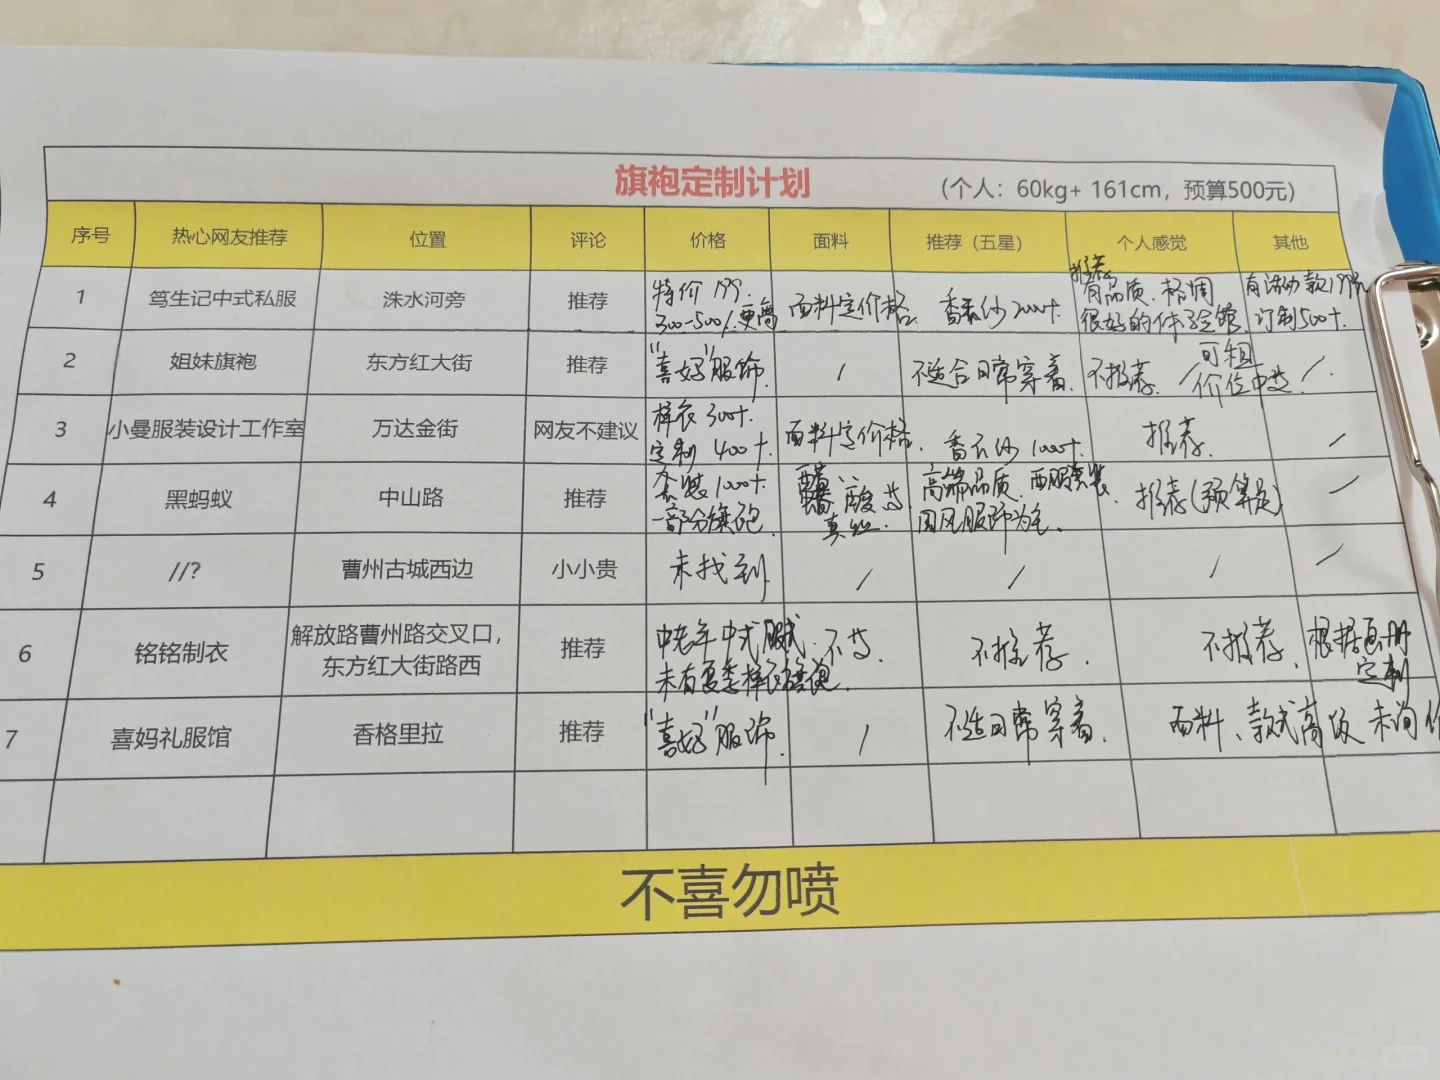 旗袍定制计划 (个人：60kg+ 161cm，预算500元)
序号 热心网友推荐 位置 评论 价格 面料 推荐（五星） 个人感觉 其他
1 笃生记中式私服 洙水河旁 推荐 特价199. 300-500/.更高 面料定价格. 香云纱2000+. 推荐 有品质.格调 很好的体验馆. 有活动款199元 订制500+.
2 姐妹旗袍 东方红大街 推荐 "喜好"服饰. / 不适合日常穿着. 不推荐. / 可租 价位中益. /.
3 小曼服装设计工作室 万达金街 网友不建议 样衣300+. 定制400+. 面料定价格. 香云纱1000+. 推荐. /
4 黑蚂蚁 中山路 推荐 套装1000+. 一部分旗袍. 醋酸 真丝. 高端品质.西服套装. 国风服饰为主. 推荐(预算足) /
5 //? 曹州古城西边 小小贵 未找到 / / / /
6 铭铭制衣 解放路曹州路交叉口，
东方红大街路西 推荐 中老年中式服式. 未有夏季样衣旗袍. 不推荐. 不推荐. 根据画册 定制
7 喜妈礼服馆 香格里拉 推荐 "喜好"服饰. / 不适日常穿着. 面料、款式高级 未询价
不喜勿喷